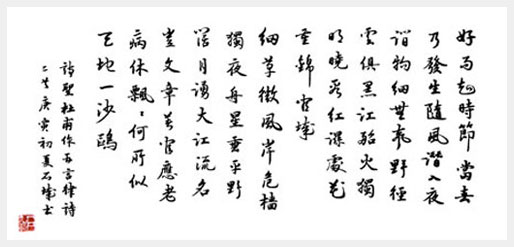 好雨時節當春
乃發生隨風潛入夜
潤物細無聲野徑
雲俱黑江船火獨
明曉看紅濕處花
重錦官城
細草微風岸危檣
獨夜舟星垂平野
闊月湧大江流名
豈文章著官應老
病休飄〻何所似
天地一沙鷗
詩聖杜甫作五言律詩
庚寅初夏石書